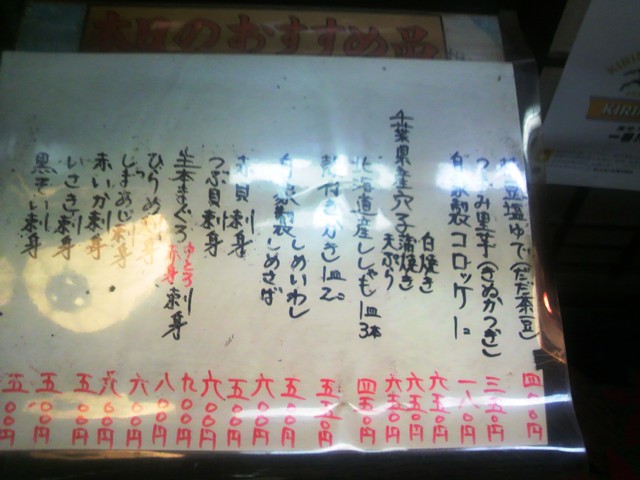 本日のおすすめ品
枝豆塩ゆで(だだ茶豆) 四〇〇円
つかみ里芋(きぬかつぎ) 三五〇円
自家製コロッケ 1コ 一八〇円
千葉県産穴子
白焼き 六五〇円
蒲焼き 六五〇円
天ぷら 六五〇円
北海道産ししゃも 1皿3本 四五〇円
殻付きかき 1皿2コ 五五〇円
自家製しめいわし 五〇〇円
しめさば 六〇〇円
赤貝刺身
つぶ貝刺身 六〇〇円
生本まぐろ 中とろ 赤身 刺身
九〇〇円
八〇〇円
ひらめ刺身 六〇〇円
しまあじ刺身 六〇〇円
赤いか刺身 五〇〇円
いさき刺身 五〇〇円
黒そい刺身 五〇〇円
KIRIN
一番